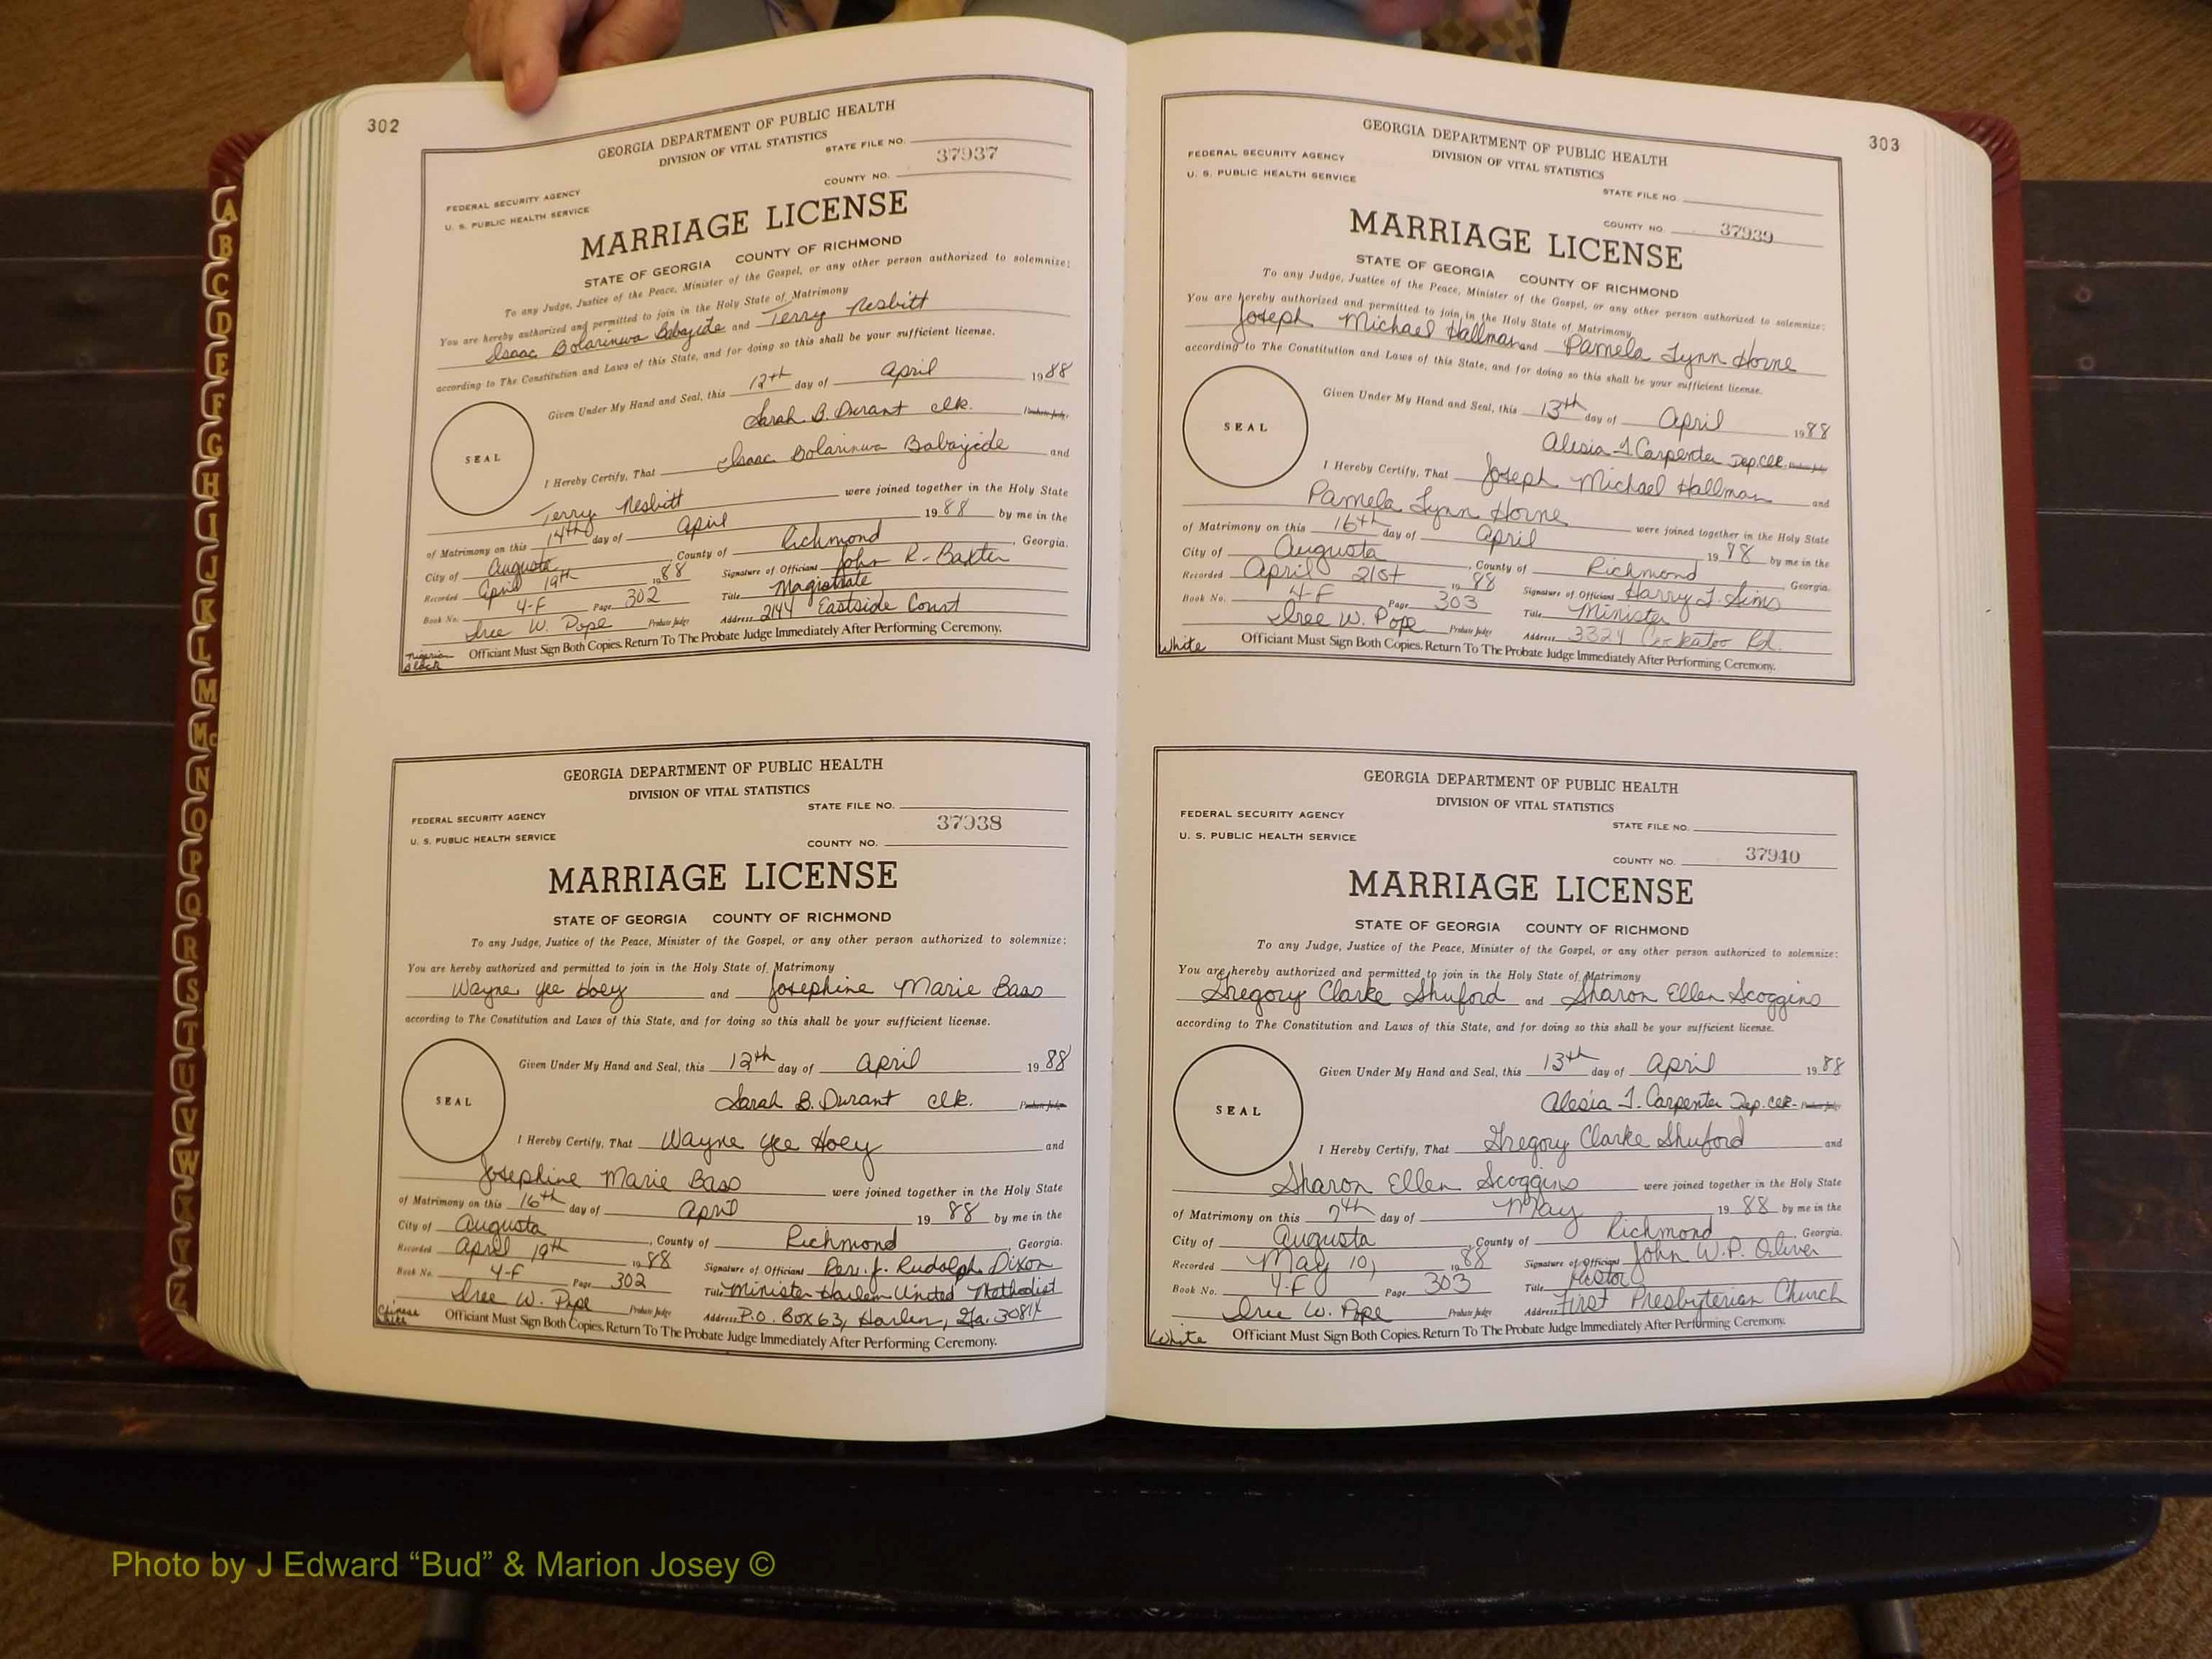 302
GEORGIA DEPARTMENT OF PUBLIC HEALTH
DIVISION OF VITAL STATISTICS
STATE FILE NO.
37937
COUNTY NO.
FEDERAL SECURITY AGENCY
U. S. PUBLIC HEALTH SERVICE
MARRIAGE LICENSE
STATE OF GEORGIA COUNTY OF RICHMOND
To any Judge, Justice of the Peace, Minister of the Gospel, or any other person authorized to solemnize:
You are hereby authorized and permitted to join in the Holy State of Matrimony
Isaac Bolarinwa Babajide and Terry Nesbitt
according to The Constitution and Laws of this State, and for doing so this shall be your sufficient license.
Given Under My Hand and Seal, this 12th day of April 1988
Sarah B. Durant Clk. Probate Judge
SEAL
I Hereby Certify, That Isaac Bolarinwa Babajide and
Terry Nesbitt were joined together in the Holy State
of Matrimony on this 14th day of April 1988 by me in the
City of Augusta, County of Richmond, Georgia.
Recorded April 19th 1988 Signature of Officiant John R. Baxter
Book No. 4-F Page 302 Title Magistrate
Iree W. Pope Probate Judge Address 2144 Eastside Court
Nigerian
Black
Officiant Must Sign Both Copies. Return To The Probate Judge Immediately After Performing Ceremony.
GEORGIA DEPARTMENT OF PUBLIC HEALTH
DIVISION OF VITAL STATISTICS
STATE FILE NO.
FEDERAL SECURITY AGENCY
37938
U. S. PUBLIC HEALTH SERVICE
COUNTY NO.
MARRIAGE LICENSE
STATE OF GEORGIA COUNTY OF RICHMOND
To any Judge, Justice of the Peace, Minister of the Gospel, or any other person authorized to solemnize:
You are hereby authorized and permitted to join in the Holy State of Matrimony
Wayne Yee Hoey and Josephine Marie Bass
according to The Constitution and Laws of this State, and for doing so this shall be your sufficient license.
Given Under My Hand and Seal, this 12th day of April 1988
Sarah B. Durant Clk. Probate Judge
SEAL
I Hereby Certify, That Wayne Yee Hoey and
Josephine Marie Bass were joined together in the Holy State
of Matrimony on this 16th day of April 1988 by me in the
City of Augusta, County of Richmond, Georgia.
Recorded April 19th 1988 Signature of Officiant Rev. J. Rudolph Dixon
Book No. 4-F Page 302 Title Minister Harlem United Methodist
Iree W. Pope Probate Judge Address P.O. Box 63, Harlem, Ga. 30814
Chinese
White
Officiant Must Sign Both Copies. Return To The Probate Judge Immediately After Performing Ceremony.
303
GEORGIA DEPARTMENT OF PUBLIC HEALTH
DIVISION OF VITAL STATISTICS
FEDERAL SECURITY AGENCY
U. S. PUBLIC HEALTH SERVICE
STATE FILE NO.
COUNTY NO. 37939
MARRIAGE LICENSE
STATE OF GEORGIA COUNTY OF RICHMOND
To any Judge, Justice of the Peace, Minister of the Gospel, or any other person authorized to solemnize:
You are hereby authorized and permitted to join in the Holy State of Matrimony
Joseph Michael Hallman and Pamela Lynn Horne
according to The Constitution and Laws of this State, and for doing so this shall be your sufficient license.
Given Under My Hand and Seal, this 13th day of April 1988
Alesia J. Carpenter Dep. Clk. Probate Judge
SEAL
I Hereby Certify, That Joseph Michael Hallman and
Pamela Lynn Horne were joined together in the Holy State
of Matrimony on this 16th day of April 1988 by me in the
City of Augusta, County of Richmond, Georgia.
Recorded April 21st 1988 Signature of Officiant Harry J. Sims
Book No. 4-F Page 303 Title Minister
Iree W. Pope Probate Judge Address 3324 Cockatoo Rd.
White
Officiant Must Sign Both Copies. Return To The Probate Judge Immediately After Performing Ceremony.
GEORGIA DEPARTMENT OF PUBLIC HEALTH
DIVISION OF VITAL STATISTICS
FEDERAL SECURITY AGENCY
STATE FILE NO.
U. S. PUBLIC HEALTH SERVICE
COUNTY NO. 37940
MARRIAGE LICENSE
STATE OF GEORGIA COUNTY OF RICHMOND
To any Judge, Justice of the Peace, Minister of the Gospel, or any other person authorized to solemnize:
You are hereby authorized and permitted to join in the Holy State of Matrimony
Gregory Clarke Shuford and Sharon Ellen Scoggins
according to The Constitution and Laws of this State, and for doing so this shall be your sufficient license.
Given Under My Hand and Seal, this 13th day of April 1988
Alesia J. Carpenter Dep. Clk. Probate Judge
SEAL
I Hereby Certify, That Gregory Clarke Shuford and
Sharon Ellen Scoggins were joined together in the Holy State
of Matrimony on this 7th day of May 1988 by me in the
City of Augusta, County of Richmond, Georgia.
Recorded May 10, 1988 Signature of Officiant John W.P. Oliver
Book No. 4-F Page 303 Title Pastor
Iree W. Pope Probate Judge Address First Presbyterian Church
White
Officiant Must Sign Both Copies. Return To The Probate Judge Immediately After Performing Ceremony.
A
B
C
D
E
F
G
H
I
J
K
L
M
Mc
N
O
P
Q
R
S
T
U
V
W
X
Y
Z
Photo by J Edward “Bud” & Marion Josey ©